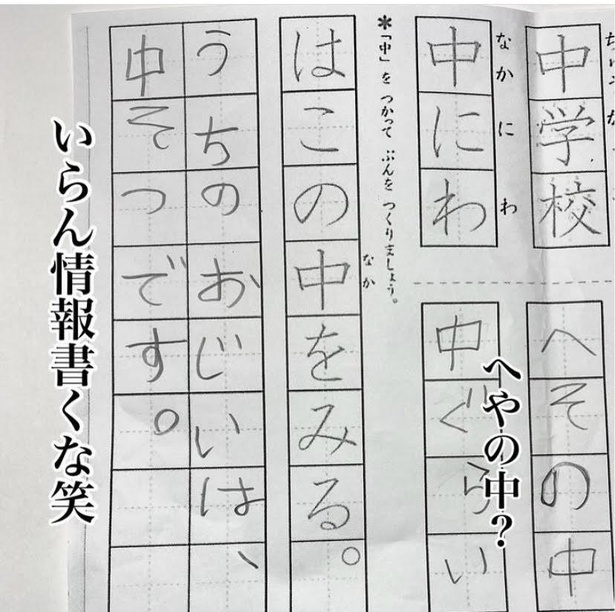 中学校
へその中
なかにわ
中にわ
へやの中?
中ぐらい
＊「中」を つかって ぶんを つくりましょう。
なか
はこの中をみる。
うちのおじいは、
中そつです。
いらん情報書くな笑